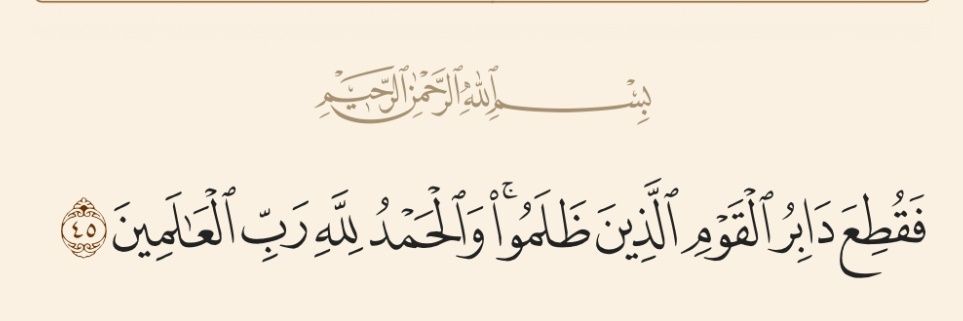 بِسْمِ ٱللَّهِ ٱلرَّحْمَٰنِ ٱلرَّحِيمِ
فَقُطِعَ دَابِرُ ٱلْقَوْمِ ٱلَّذِينَ ظَلَمُوا۟ ۚ وَٱلْحَمْدُ لِلَّهِ رَبِّ ٱلْعَٰلَمِينَ ٤٥